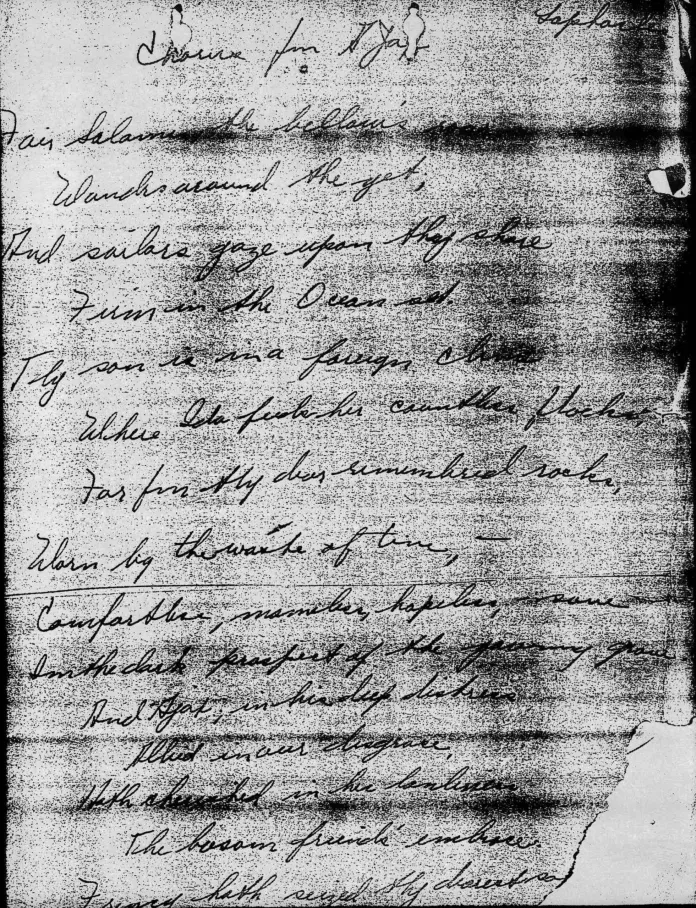 Sophocles
Chorus fm Ajax
Fair Salamis the bellow's roar
Wanders around the yet,
And sailors gaze upon thy shore
Firm in the Ocean set.
Thy son is in a foreign clime
Where Ida feeds her countless flocks,—
Far fm thy dear remembered rocks,
Worn by the waste of time,—
Comfortless, nameless, hopeless,—save
In the dark prospect of the yawning grave
And Ajax, in his deep distress
Allied in our disgrace,
Hath cherished in his loneliness
The bosom friends' embrace.
Frenzy hath seized thy dearest son